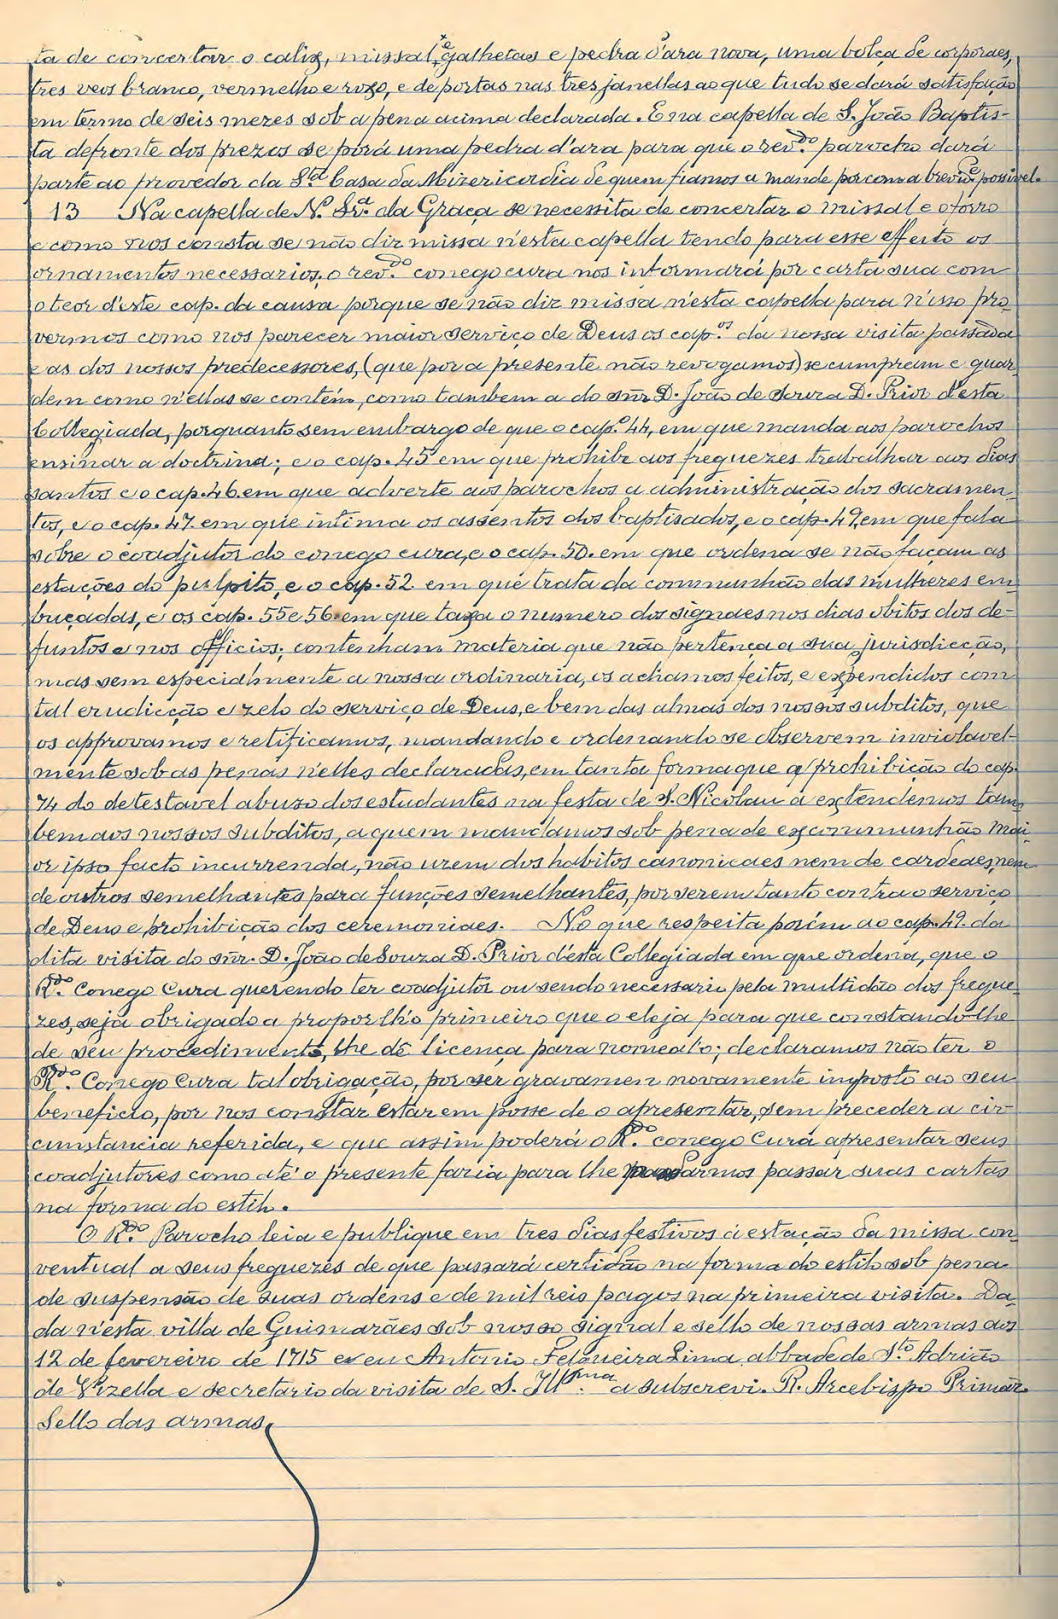 ta de concertar o calix, missal, e galhetas e pedra d'ara nova, uma bolça de corporaes,
tres veos branco, vermelho e roxo, e de portas nas tres janellas ao que tudo se dará satisfação
em termo de seis mezes sob a pena acima declarada. E na capella de S. João Baptis-
ta defronte dos prezos se porá uma pedra d'ara para que o rev.do parocho dará
parte ao provedor da S.ta Casa da Mizericordia de quem fiamos a mande por com a brevid.e possivel.
13 Na capella de N. Sr.a da Graça se necessita de concertar o missal e o forro
e como nos consta se não diz missa n'esta capella tendo para esse effeito os
ornamentos necessarios, o rev.do conego cura nos informará por carta sua com
o teor d'este cap. da causa porque se não diz missa n'esta capella para n'isso pro
vermos como nos parecer maior serviço de Deus os cap.os da nossa visita passada
e as dos nossos predecessores, (que por a presente não revogamos) se cumpram e guar-
dem como n'ellas se contém, como tambem a do snr. D. João de Souza D. Prior d'esta
Collegiada, porquanto sem embargo de que o cap.o 44, em que manda aos parochos
ensinar a doctrina; e o cap. 45 em que prohibe aos freguezes trabalhar aos dias
santos e o cap. 46 em que adverte aos parochos a administração dos sacramen-
tos, e o cap. 47 em que intima os assentos dos baptisados, e o cap. 49, em que fala
sobre o coadjutor do conego cura, e o cap. 50. em que ordena se não façam as
estações do pulpito, e o cap. 52 em que trata da communhão das mulheres em
buçadas, e os cap. 55 e 56 em que taxa o numero dos signaes nos dias obitos dos de-
funtos e nos officios; contenham materia que não pertença a sua jurisdicção,
mas sem especialmente a nossa ordinaria, os achamos feitos, e expendidos com
tal erudicção e zelo do serviço de Deus, e bem das almas dos nossos subditos, que
os approvamos e retificamos, mandando e ordenando se observem inviolavel-
mente sob as penas n'elles declaradas, em tanta forma que a prohibição do cap.
74 do detestavel abuzo dos estudantes na festa de S. Nicolau a extendemos tam
bem aos nossos subditos, a quem mandamos sob pena de excommunhão mai
or ipso facto incurrenda, não uzem dos habitos canonicaes nem de cardeaes, nem
de outros semelhantes para funções semelhantes, por serem tanto contra o serviço
de Deus e prohibição dos ceremoniaes. No que respeita porém ao cap. 49. da
dita visita do snr. D. João de Souza D. Prior d'esta Collegiada em que ordena, que o
R.do Conego Cura querendo ter coadjutor ou sendo necessario pela multidão dos fregue-
zes, seja obrigado a propor lh'o primeiro que o eleja para que constando-lhe
de seu procedimento, lhe dê licença para nomeal'o; declaramos não ter o
R.do Conego Cura tal obrigação, por ser gravamen novamente imposto ao seu
beneficio, por nos constar estar em posse de o apresentar, sem preceder a cir
cumstancia referida, e que assim poderá o R.do conego Cura apresentar seus
coadjutores como até o presente fazia para lhe passarmos passar suas cartas
na forma do estilo.
O R.do Parocho leia e publique em tres dias festivos á estação da missa con-
ventual a seus freguezes de que passará certidão na forma do estilo sob pena
de suspensão de suas ordens e de mil reis pagos na primeira visita. Da-
da n'esta villa de Guimarães sob nosso signal e sello de nossas armas aos
12 de fevereiro de 1715 e eu Antonio Felgueira Lima, abbade de S.to Adrião
de Vizella e secretario da visita de S. Ill.sma a subscrevi. R. Arcebispo Primaz.
Sello das armas